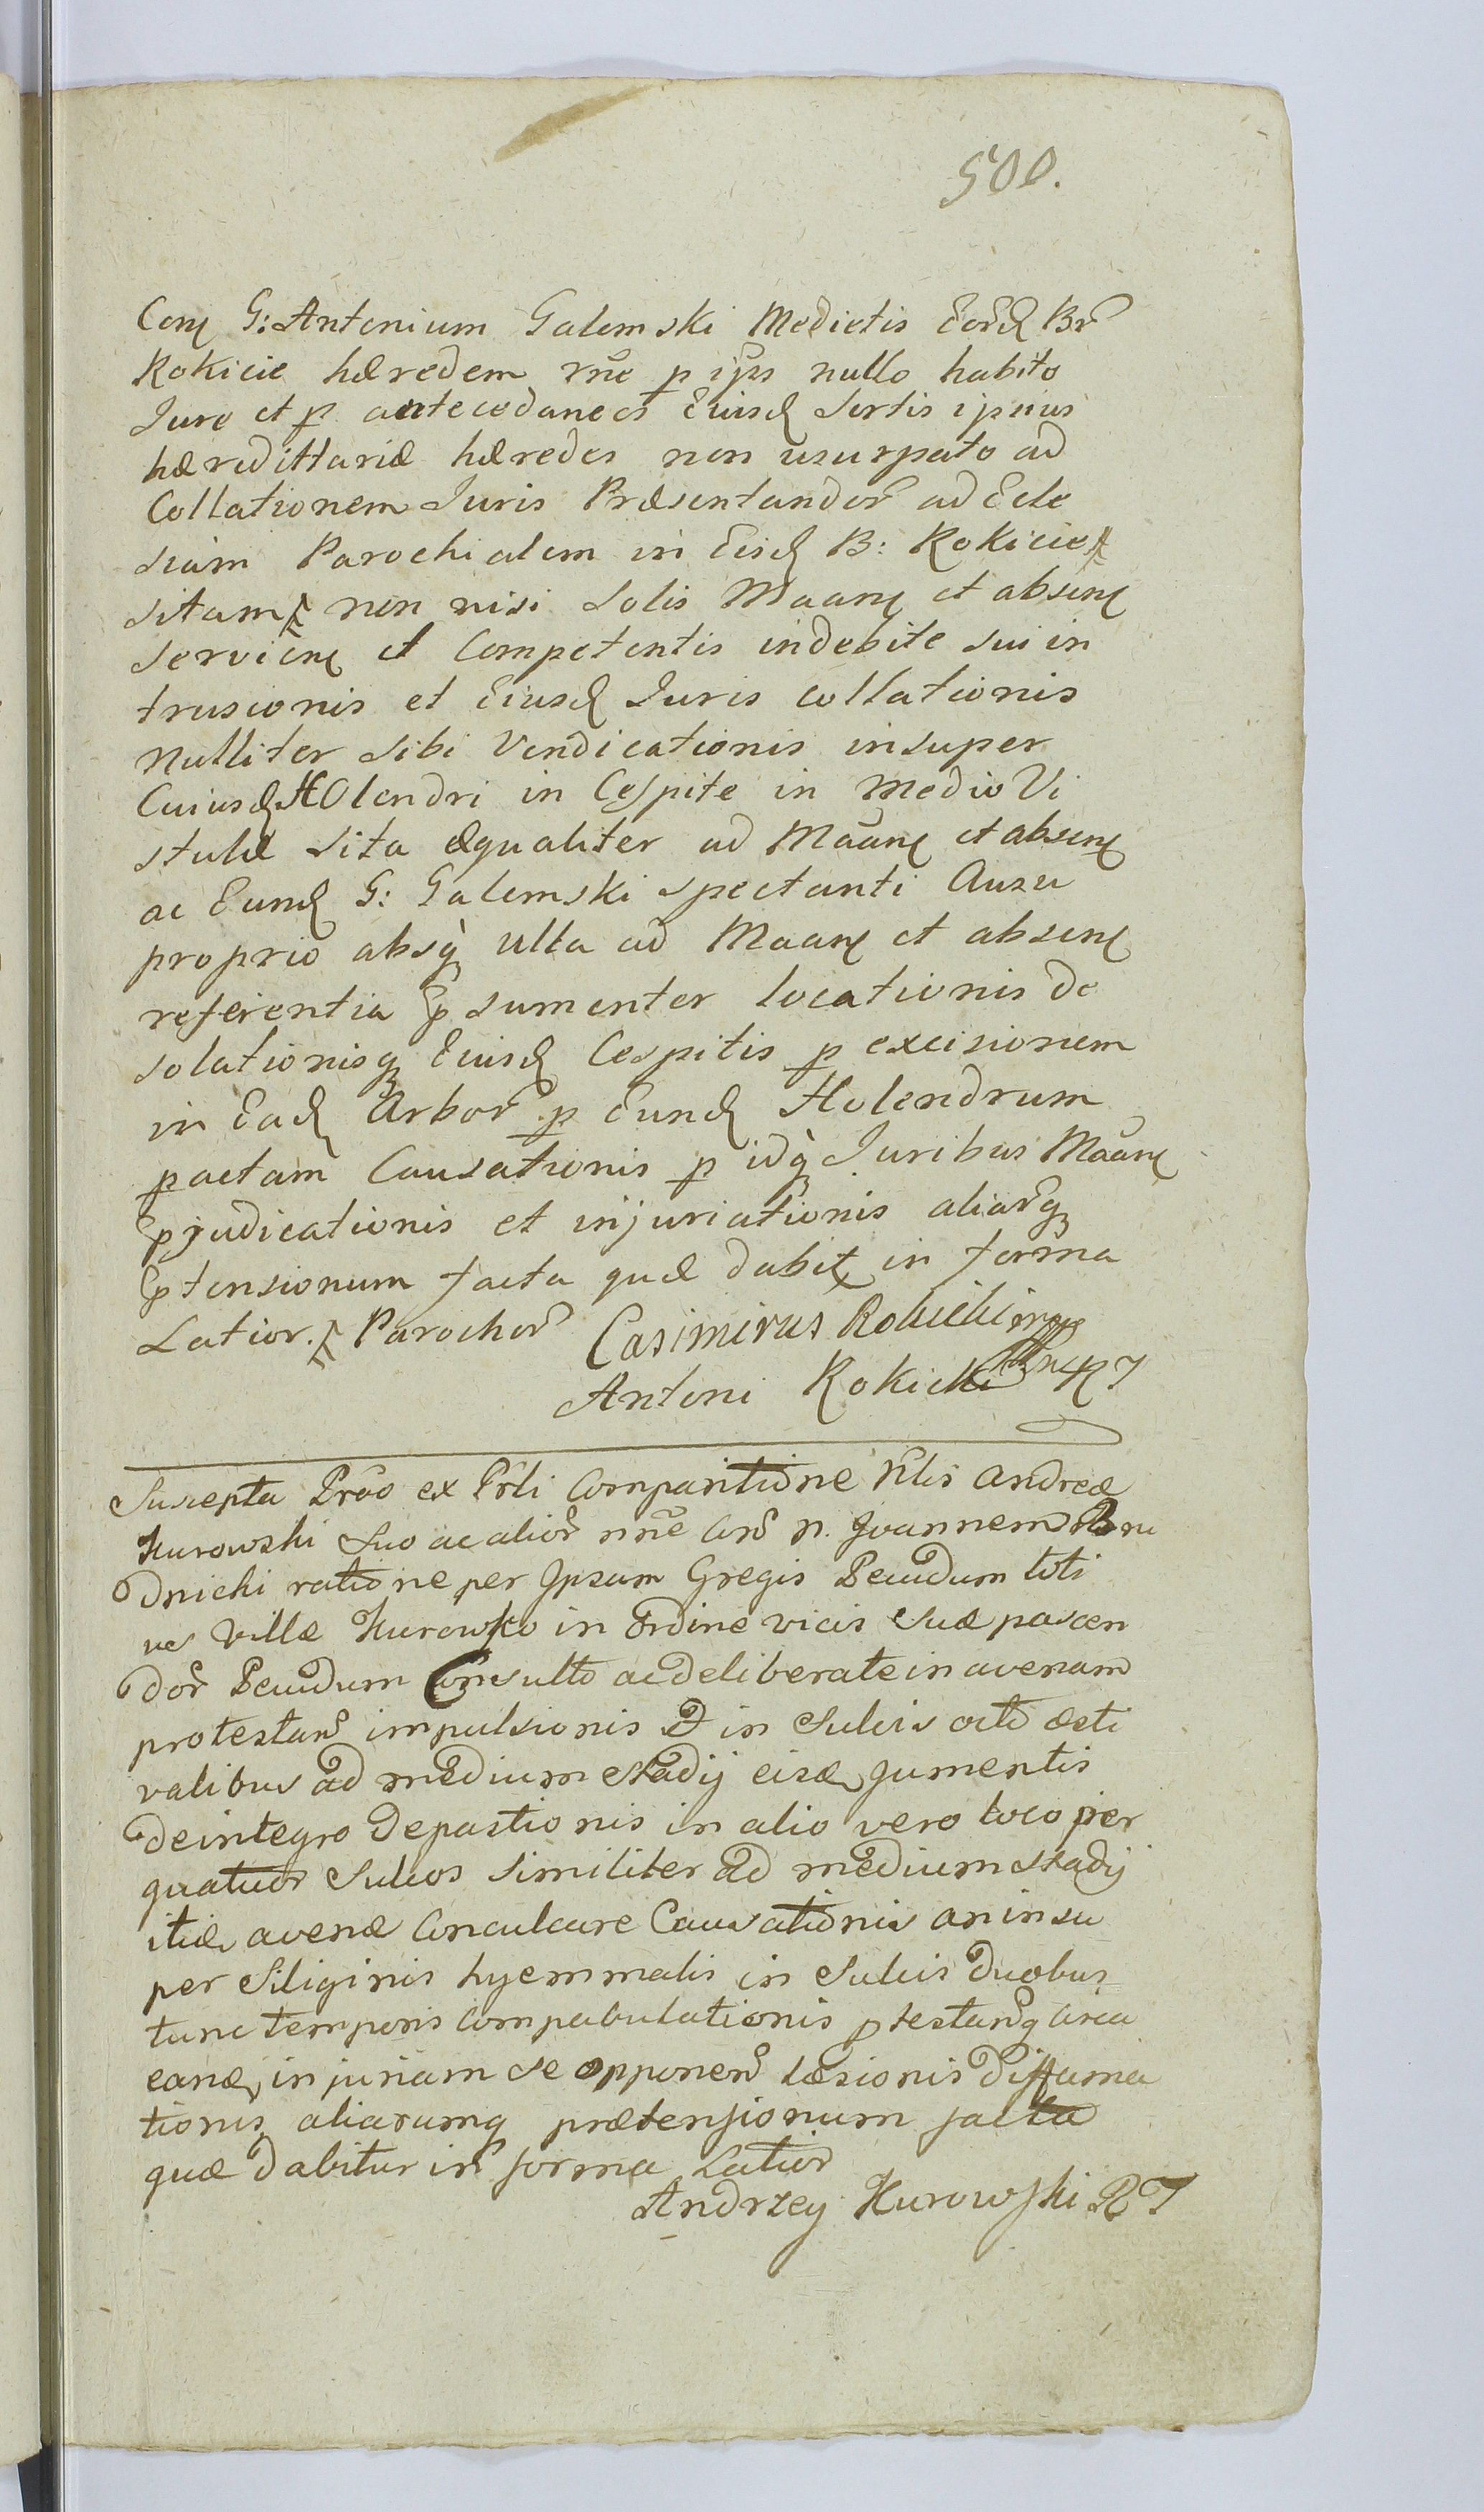 500.
Con̄ G: Antonium Galemski Medietis Eord̄ Br̄
Rokicie hæredem rn̄e p ip̄s nullo habito
Jure et p antecedaneos Eiusd̄ Sortis ipsius
hæredittariæ hæredes non usurpato ad
Collationem Juris Præsentandor̄ ad Eccle
siam Parochialem in Eisd̄ B: Rokicie
sitam non nisi Solis Maan̄ et absen̄
servien̄ et Competentis indebite sui in
trusionis et Eiusd̄ Juris collationis
Nulliter sibi Vendicationis insuper
Cuiusd̄ HOlendri in Cespite in medio Vi
stulæ sita æqualiter ad Maan̄ et absen̄
ac Eund̄ G: Galemski spectanti Ausu
proprio absq̀ ulla ad Maan̄ et absen̄
referentia p̄sumenter locationis de
solationisq Eiusd̄ Cespitis p excisionem
in Ead̄ Arbor̄ p Eund̄ Holendrum
pactam Causationis p idq̀ Juribus Maan̄
p̄judicationis et injuriationis aliar̄q
p̄tensionum facta quæ dabit̄ in forma
Latior. Parochor̄ Casimirus Rokicki mpp
Antoni Rokicki RT
Suscepta Prō ex Prli Comparitione Nlis Andreæ
Kurowski Suo ac alior̄ nn̄e Con̄ n. Joannem Bru
dnicki ratione per Ipsum Gregis Pecudum toti
us Villæ Kurowsko in Ordine vicis Suæ pascen
dor̄ Pecudum Consulto ac deliberate in avenam
protestan̄ impulsionis et in Sulcis octo æsti
valibus ad medium Stadij eisd̄ Jumentis
deintegro depastionis in alio vero loco per
quatuor Sulcos Similiter ad medium Stadij
itid̄ avenæ Conculcare Causationis an insu
per Siliginis hyemmalis in Sulcis duobus
tunc temporis Compabulationis p testan̄q circa
eand̄ injuriam se opponen̄ læsionis diffama
tionis aliarumq prætensionum facta
quæ dabitur in forma Latior
Andrzey Kurowski RT